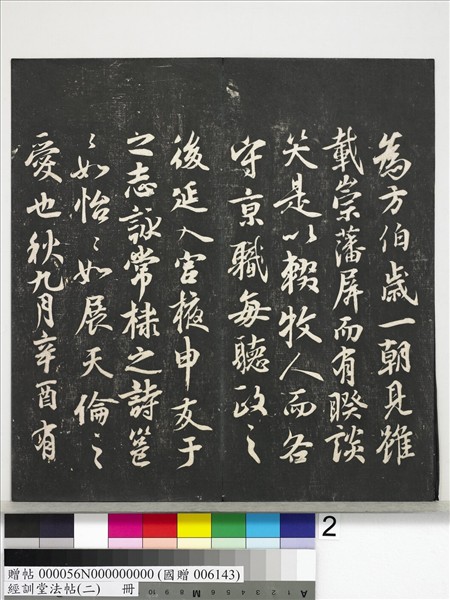 為方伯歲一朝見雖
載崇藩屏而有睽談
笑是以輟牧人而各
守京職每聽政之
後延入宮掖申友于
之志詠常棣之詩邕
〻如怡〻如展天倫之
愛也秋九月辛酉有
2
贈帖 000056N000000000 (國贈 006143)
經訓堂法帖(二) 冊